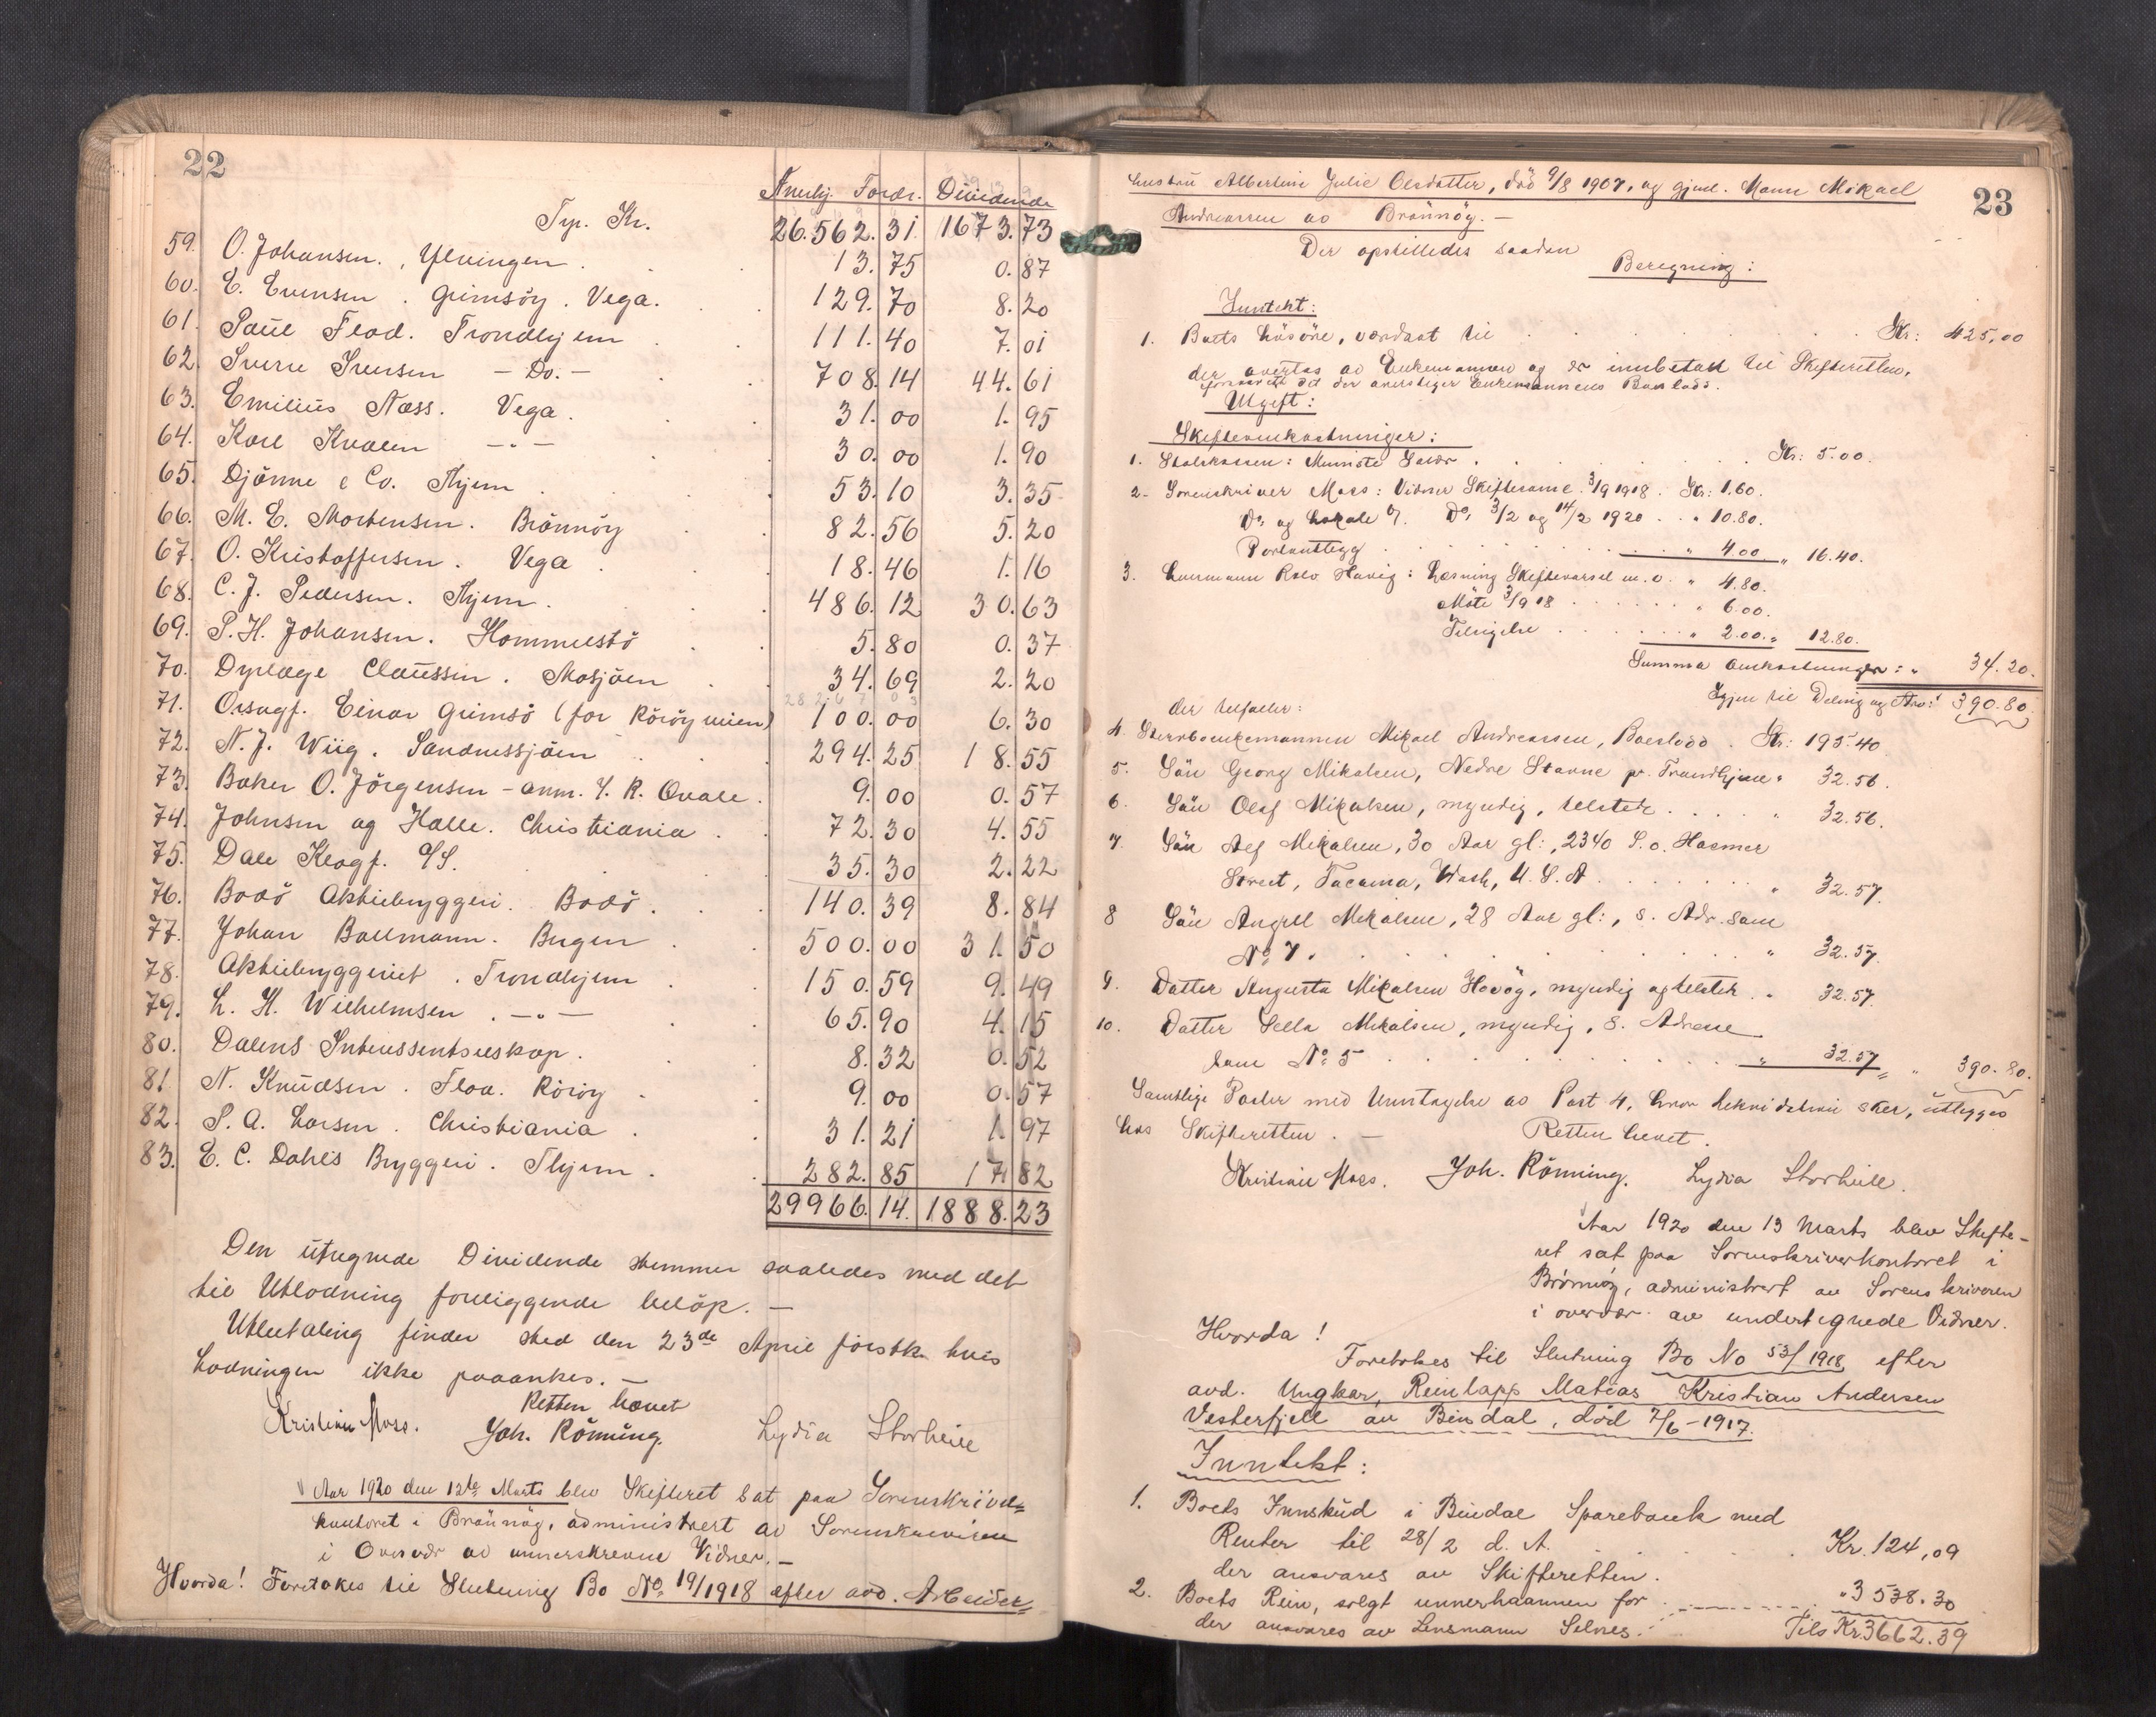 22
Anerkj. Fordr. Dividende
Trp. Kr. 26.562.31 1673.73
59. O. Johansen., Ylvingen . 13.75 0.87
60. E. Evensen . Grimsöy . Vega. 129.70 8.20
61. Paul Flod. Trondhjem 111.40 7.01
62. Sverre Iversen — Do. — 708.14 44.61
63. Emilius Næss. Vega . 31.00 1.95
64. Karl Kvalen — " — 30.00 1.90
65. Djönne & Co. Thjem 53.10 3.35
66. M. E. Mortensen. Brönnöy 82.56 5.20
67. O. Kristoffersen . Vega 18.46 1.16
68. C. J. Pedersen. Thjem. 486.12 30.63
69. P. H. Johansen. Hommelstö 5.80 0.37
70. Dyrlæge Claussen . Mosjöen 34.69 2.20
71. Orsagf. Einar Grimsö (for Röröy meieri) 100.00 6.30
72. N. J. Wiig . Sandnessjöen 294.25 18.55
73. Baker O. Jörgensen – anm. Y. R. Qvale . 9.00 0.57
74. Johnsen og Halle. Christiania . 72.30 4.55
75. Dale Klogf. A/S. 35.30 2.22
76. Bodö Aktiebryggeri. Bodö . 140.39 8.84
77. Johan Bollmann. Bergen 500.00 31.50
78. Aktiebryggeriet . Trondhjem 150.59 9.49
79. L. H. Wilhelmsen . — " — 65.90 4.15
80. Dalens Interessentselskap . 8.32 0.52
81. N. Knudsen . Floa. Röröy 9.00 0.57
82. P. A. Larsen . Christiania 31.21 1.97
83. E. C. Dahls Bryggeri . Thjem . 282.85 17.82
29966.14. 1888.23
Den utregnede Dividende stemmer saaledes med det
til Utlodning foreliggende belöp. —
Utbetaling finder sted den 23de April förstk. hvis
Lodningen ikke paaankes. —
Retten hævet
Kristian Moss. Joh. Rönning. Lydia Storheill
Aar 1920 den 12te Marts blev Skifteret sat paa Sorenskriver=
kontoret i Brönnöy, administrert av Sorenskriveren
i Overvær av underskrevne Vidner. —
Hvorda! Foretokes til Slutning Bo No. 19/1918 efter avd. Arbeider=
23
hustru Albertine Julie Olsdatter, död 9/8 1907, og gjenl. Mann Mikael
Andreassen av Brönnöy. —
Der opstilledes saadan
Beregning:
Inntekt:
1. Boets Lösöre, værdsat til Kr: 425,00
der overtas av Enkemannen og er innbetalt til Skifteretten,
forsaavitt det der overstiger Enkemannens Boslodd.
Utgift:
Skifteomkostninger:
1. Statskassen: Minste Gebyr . Kr: 5.00.
2. Sorenskriver Moss: Vidner Skiftesaml. 3/9 1918 . Kr: 1.60.
Do. og Lokale 7. Do. 3/2 og 14/2 1920 . . " 10.80.
Portoutlegg " 4.00 " 16.40.
3. Lensmann Rolv Havig: Læsning Skiftevarsel m. v. " 4.80.
Möte 3/9 18 " 6.00.
Tilsigelse " 2.00. " 12.80.
Summa Omkostninger: " 34.20.
Igjen til Deling og Arv: 390.80.
der tilfaller:
4. Stervboenkemannen Mikael Andreassen, Boslodd . Kr: 195.40
5. Sön Georg Mikalsen, Nedre Stavne pr. Trondhjem " 32.56.
6. Sön Olaf Mikalsen, myndig, tilstede " 32.56.
7. Sön Alf Mikalsen, 30 Aar gl:, 2340 S. o. Hosmer
Street, Tacoma, Wash, U. S. A " 32.57.
8 Sön Angell Mikalsen, 28 Aar gl:, s. Adr. som
No 7. " 32.57.
9. Datter Augusta Mikalsen Hovög, myndig og tilstede . " 32.57.
10. Datter Sella Mikalsen, myndig, s. Adresse
som No 5 " 32.57 " 390.80.
Samtlige Poster med Unntagelse av Post 4, hvor likvidation sker, utlegges
hos Skifteretten . — Retten hevet .
Kristian Moss. Joh. Rönning. Lydia Storheill.
Aar 1920 den 13 Marts blev Skifte-
ret sat paa Sorenskriverkontoret i
Brönnöy, administrert av Sorenskriveren
i overvær av undertegnede Vidner.
Hvorda!
Foretokes til Slutning Bo No 53/1918 efter
avd. Ungkar, Reinlapp Matias Kristian Andersen
Vesterfjell av Bindal, död 7/6 – 1917.
Inntekt:
1. Boets Innskud i Bindal Sparebank med
Renter til 28/2 d. A. Kr. 124,09
der ansvares av Skifteretten.
2. Boets Rein, solgt unnerhaannen for " 3538.30
der ansvares av Lensmann Selnes. Tils Kr. 3662.39